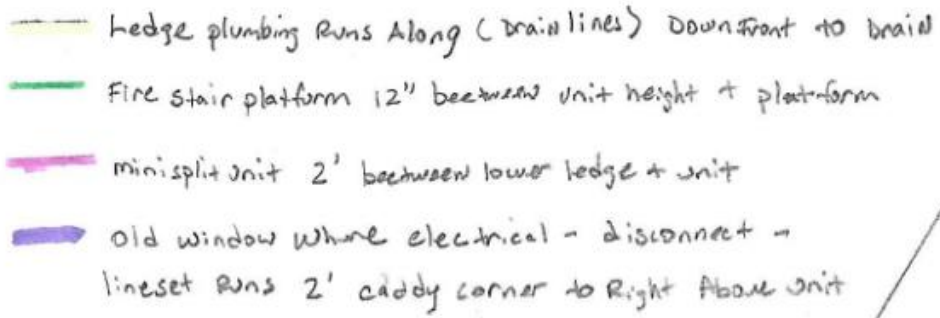 Ledge plumbing Runs Along (Drain lines) Down Front to Drain
Fire stair platform 12" beetween unit height + platform
minisplit unit 2' beetween lower ledge + unit
old window Where electrical - disconnect -
lineset Runs 2' caddy corner to Right Above unit